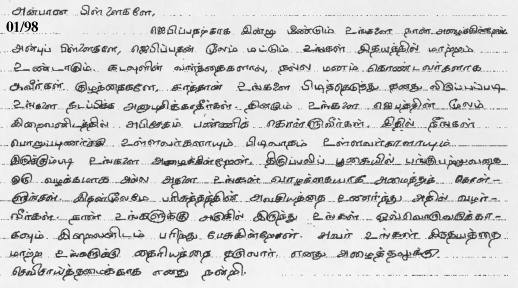 அன்பான பிள்ளைகளே,
01/98 ஜெபிப்பதற்காக இன்று மீண்டும் உங்களை நான் அழைக்கின்றேன்.
அன்புப் பிள்ளைகளே, ஜெபிப்பதன் மூலம் மட்டும் உங்கள் இதயத்தில் மாற்றம்
உண்டாகும். கடவுளின் வார்த்தைகளால், நல்ல மனம் கொண்டவர்களாக
ஆவீர்கள். குழந்தைகளே, சாத்தான் உங்களை பிடித்தெடுத்து தனது விருப்பப்படி
உங்களை நடப்பிக்க அனுமதிக்காதீர்கள். தினமும் உங்களை ஜெபத்தின் மூலம்
இறைவனிடத்தில் அர்ப்பணம் பண்ணிக் கொள்ளுவீர்கள். இதில் நீங்கள்
பொறுப்புணர்ச்சி உள்ளவர்களாயும் பிடிவாதம் உள்ளவர்களாயும்
இருக்கும்படி உங்களை அழைக்கின்றேன். திருப்பலிப் பூசையில் பங்குபற்றுவதை
ஒரு வழக்கமாக அல்ல அதனை உங்கள் வாழ்க்கையாக அமைத்துக் கொள்-
ளுங்கள். இதன்மூலமே பரிசுத்தத்தின் அவசியத்தை உணர்ந்து அதில் வளர்-
வீர்கள். நான் உங்களுக்கு அருகில் இருந்து உங்கள் ஒவ்வொருவருக்கா-
கவும் இறைவனிடம் பரிந்து பேசுகின்றேன். அவர் உங்கள் இதயத்தை
மாற்ற உங்களுக்கு தைரியத்தை தருவார். எனது அழைத்தலுக்கு
செவிசாய்த்தமைக்காக எனது நன்றி.